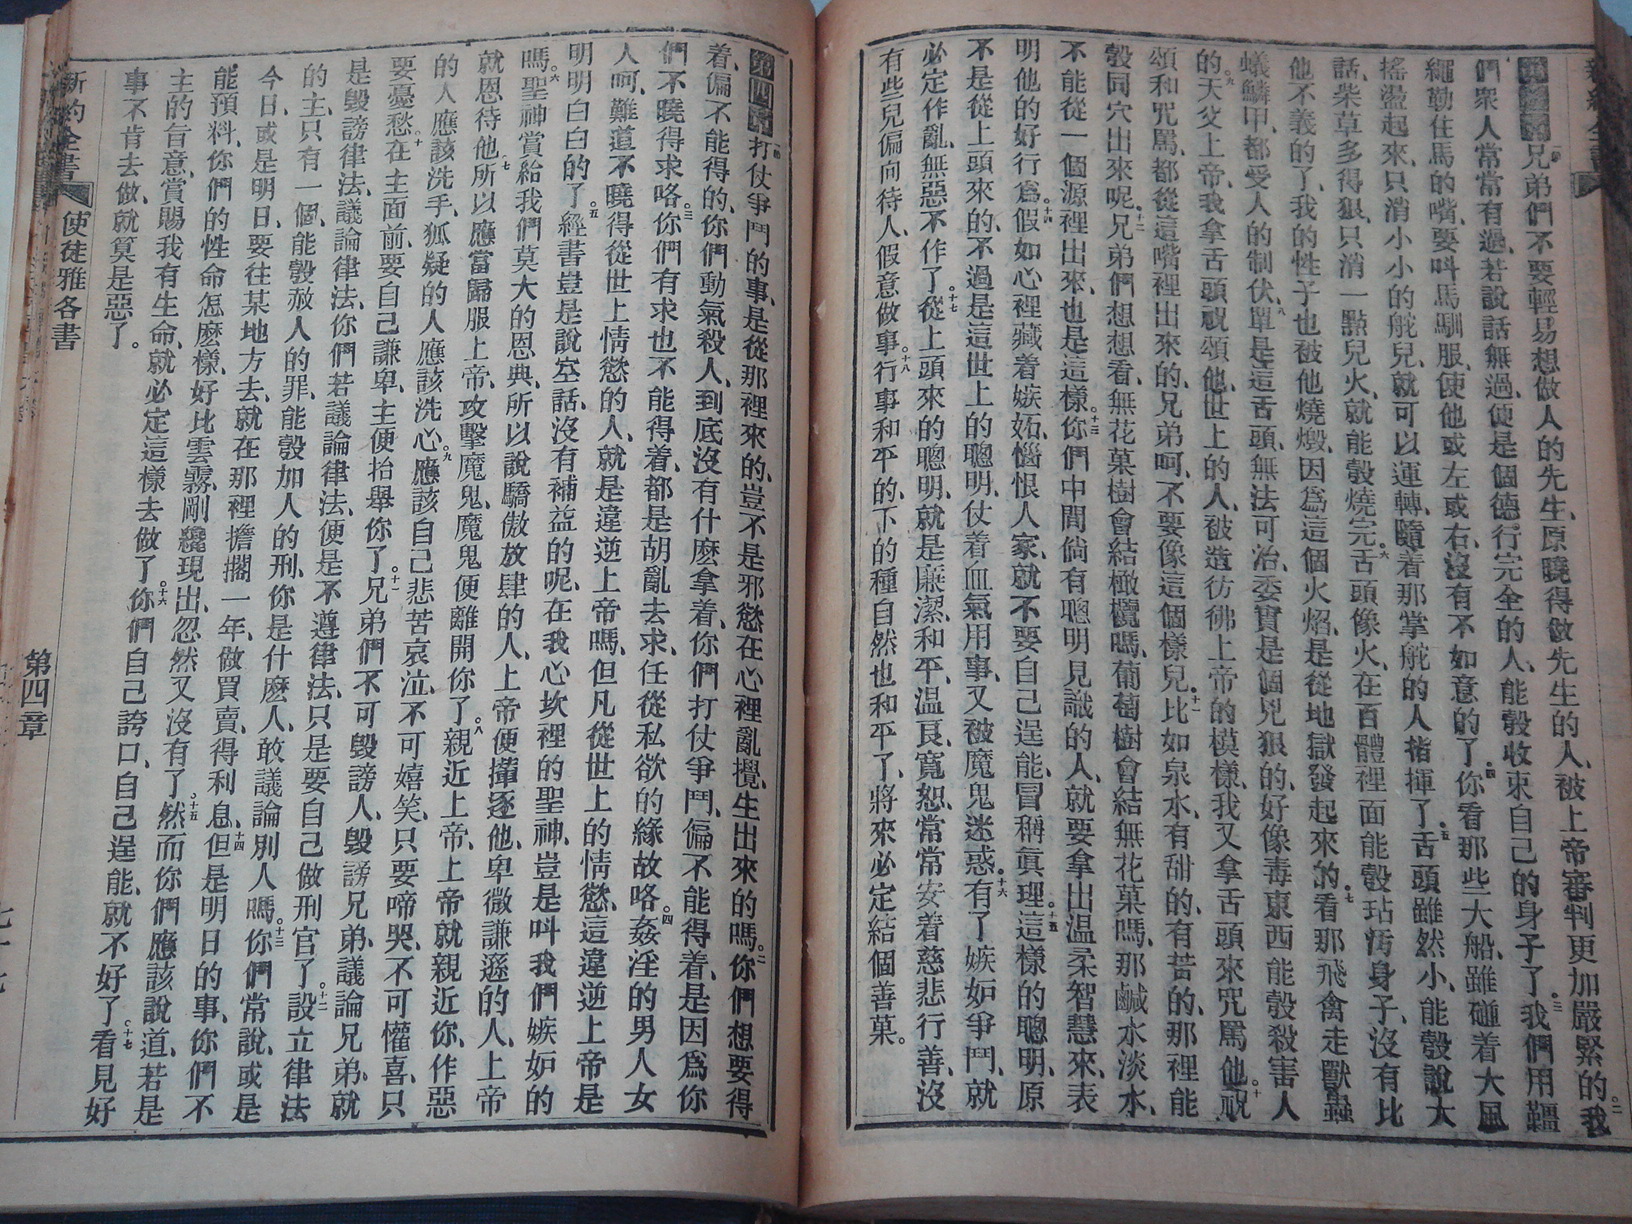 第三章兄弟們不要輕易想做人的先生、原曉得做先生的人、被上帝審判更加嚴緊的。二我
們衆人常常有過、若說話無過、便是個德行完全的人、能彀收束自己的身子了。三我們用韁
繩勒住馬的嘴、要呌馬馴服、使他或左或右、沒有不如意的了。四你看那些大船、雖碰着大風
搖盪起來、只消小小的舵兒、就可以運轉、隨着那掌舵的人指揮了。五舌頭雖然小、能彀說大
話、柴草多得狠、只消一點兒火、就能彀燒完。六舌頭像火、在百體裡面能彀玷汚身子、沒有比
他不義的了、我的性子也被他燒燬、因爲這個火焰、是從地獄發起來的。七看那飛禽走獸蟲
蟻鱗甲、都受人的制伏、八單是這舌頭、無法可治、委實是個兇狠的、好像毒東西能彀殺害人
的。九天父上帝、我拿舌頭祝頌他、世上的人、被造彷彿上帝的模樣、我又拿舌頭來咒罵他。十祝
頌和咒罵、都從這嘴裡出來的、兄弟呵、不要像這個樣兒。十一比如泉水、有甜的、有苦的、那裡能
彀同穴出來呢。十二兄弟們想想看、無花菓樹會結橄欖嗎、葡萄樹會結無花菓嗎、那鹹水淡水、
不能從一個源裡出出來、也是這樣。十三你們中間倘有聰明見識的人、就要拿出溫柔智慧來、表
明他的好行爲。十四假如心裡藏着嫉妬惱恨人家、就不要自己逞能、冒稱眞理。十五這樣的聰明、原
不是從上頭來的、不過是這世上的聰明、仗着血氣用事、又被魔鬼迷惑。十六有了嫉妬爭鬥、就
必定作亂、無惡不作了。十七從上頭來的聰明、就是廉潔、和平、溫良、寬恕、常常安着慈悲行善、沒
有些兒偏向待人、假意做事。十八行事和平的、下的種自然也和平了、將來必定結個善菓。
第四章打仗爭鬥的事、是從那裡來的、豈不是邪慾在心裡亂攪、生出來的嗎。二你們想要得
着、偏不能得的、你們動氣殺人、到底沒有什麽拿着、你們打仗爭鬥、偏不能得着、是因爲你
們不曉得求咯。三你們有求也不能得着、都是胡亂去求、任從私欲的緣故咯。四姦淫的男人女
人呵、難道不曉得從世上情慾的人、就是違逆上帝嗎、但凡從世上的情慾、這違逆上帝是
明明白白的了。五經書豈是說空話、沒有補益的呢、在我心坎裡的聖神、豈是呌我們嫉妒的
嗎。六聖神賞給我們莫大的恩典、所以說驕傲放肆的人、上帝便攆逐他、卑微謙遜的人、上帝
就恩待他。七所以應當歸服上帝、攻擊魔鬼、魔鬼便離開你了。八親近上帝、上帝就親近你、作惡
的人應該洗手、狐疑的人應該洗心。九應該自己悲苦哀泣、不可嬉笑、只要啼哭、不可懽喜、只
要憂愁。十在主面前、要自己謙卑、主便抬舉你了。十一兄弟們不可毀謗人、毀謗兄弟、議論兄弟、就
是毀謗律法、議論律法、你們若議論律法、便是不遵律法、只是要自己做刑官了。十二設立律法
的主、只有一個、能彀赦人的罪、能彀加人的刑、你是什麽人、敢議論別人嗎。十三你們常說、或是
今日、或是明日、要往某地方去、就在那裡擔擱一年、做買賣、得利息。十四但是明日的事、你們不
能預料、你們的性命怎麽樣、好比雲霧、剛纔現出、忽然又沒有了。十五然而你們應該說道、若是
主的旨意、賞賜我有生命、就必定這樣去做了。十六你們自己誇口、自己逞能、就不好了。十七看見好
事不肯去做、就算是惡了。
新約全書 使徒雅各書 第四章